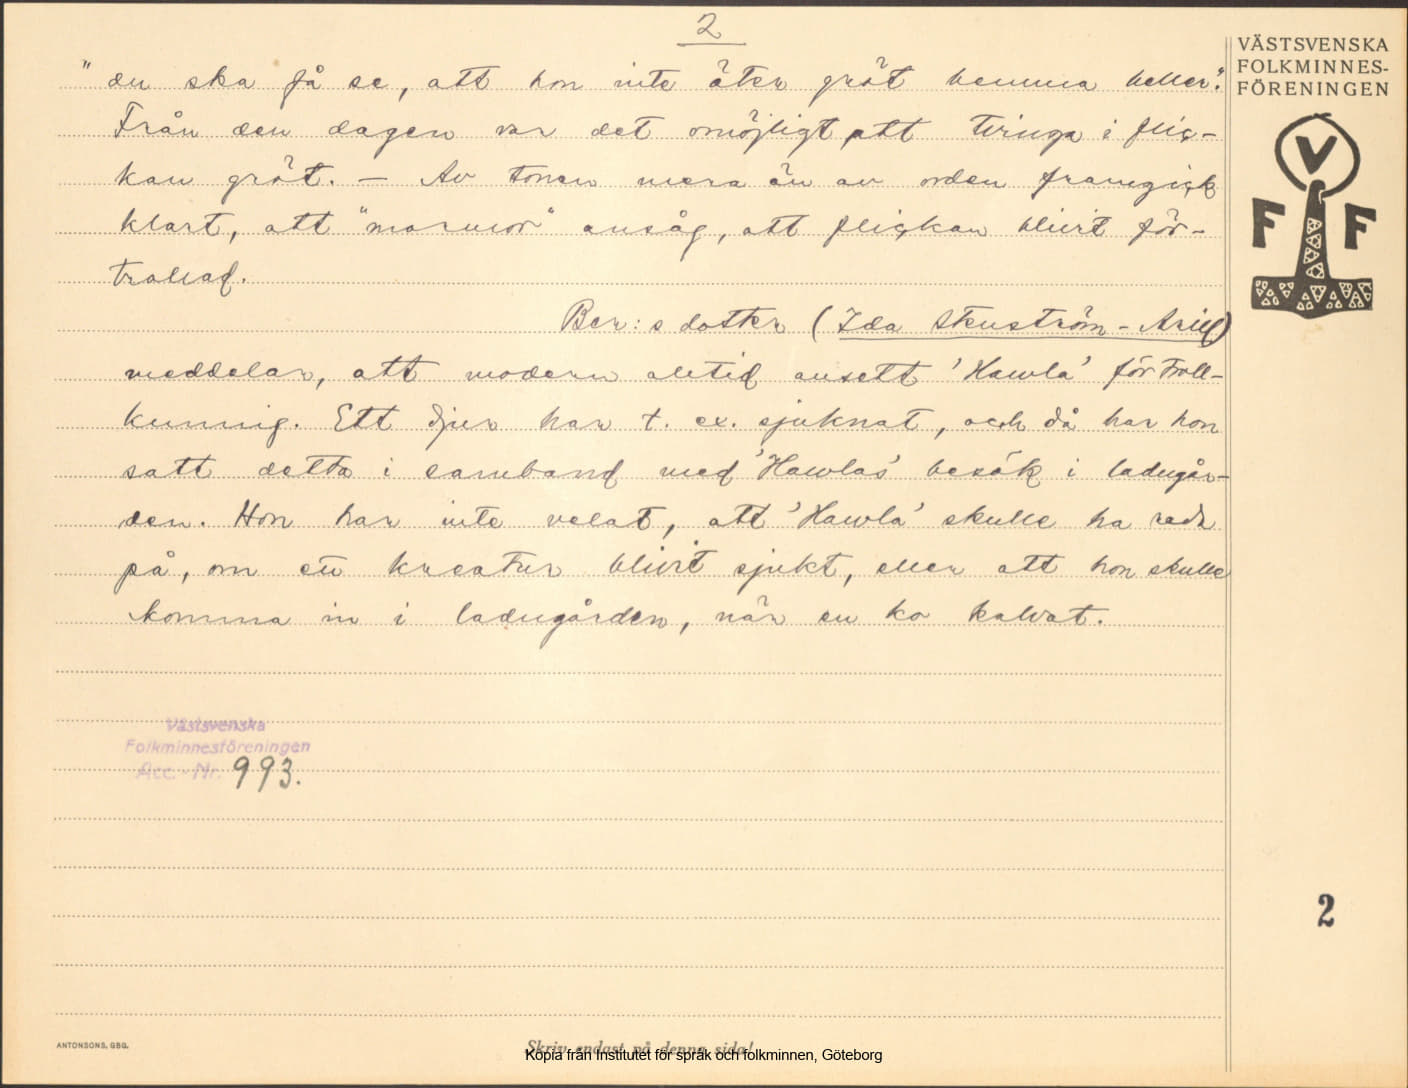 2
VÄSTSVENSKA
FOLKMINNES-
FÖRENINGEN
"du ska få se, att hon inte äter gröt hemma heller".
Från den dagen var det omöjligt att tvinga i flic-
kan gröt. — Av tonen mera än av orden framgick
klart, att "marmor" ansåg, att flickan blivit för-
trollad.
Ber:s dotter (Ida Stenström-Arill)
meddelar, att modern alltid ansett 'Hawla' för troll-
kunnig. Ett djur har t. ex. sjuknat, och då har hon
satt detta i samband med 'Hawlas' besök i ladugår-
den. Hon har inte velat, att 'Hawla' skulle ha reda
på, om ett kreatur blivit sjukt, eller att hon skulle
komma in i ladugården, när en ko kalvat.
V
F F
Västsvenska
Folkminnesföreningen
Acc.-Nr. 993.
2
ANTONSONS, GBG.
Skriv endast på denna sida!
Kopia från Institutet för språk och folkminnen, Göteborg